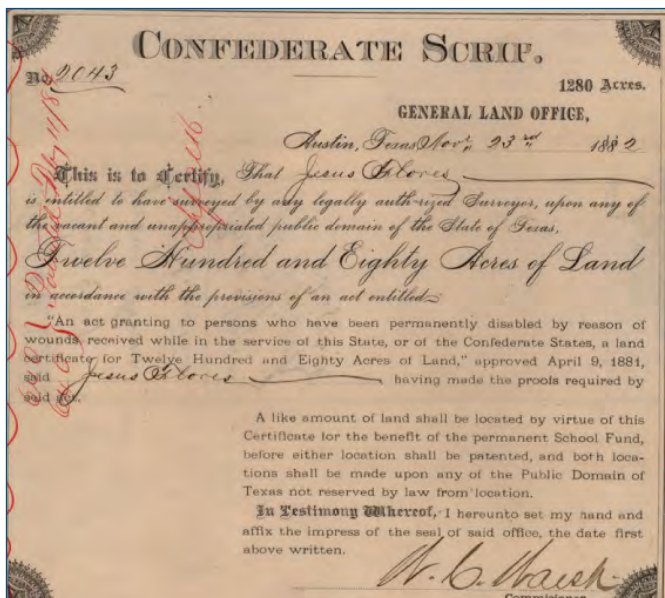 CONFEDERATE SCRIP.
No. 2043
1280 Acres.
GENERAL LAND OFFICE,
Austin, Texas, Nov. 23rd 1882
This is to Certify, That Jesus Flores
is entitled to have surveyed by any legally authorized Surveyor, upon any of
the vacant and unappropriated public domain of the State of Texas,
Twelve Hundred and Eighty Acres of Land
in accordance with the provisions of an act entitled
"An act granting to persons who have been permanently disabled by reason of
wounds received while in the service of this State, or of the Confederate States, a land
certificate for Twelve Hundred and Eighty Acres of Land," approved April 9, 1881,
said Jesus Flores having made the proofs required by
said act.
A like amount of land shall be located by virtue of this
Certificate for the benefit of the permanent School Fund,
before either location shall be patented, and both loca-
tions shall be made upon any of the Public Domain of
Texas not reserved by law from location.
In Testimony Whereof, I hereunto set my hand and
affix the impress of the seal of said office, the date first
above written.
W. C. Walsh
Commissioner